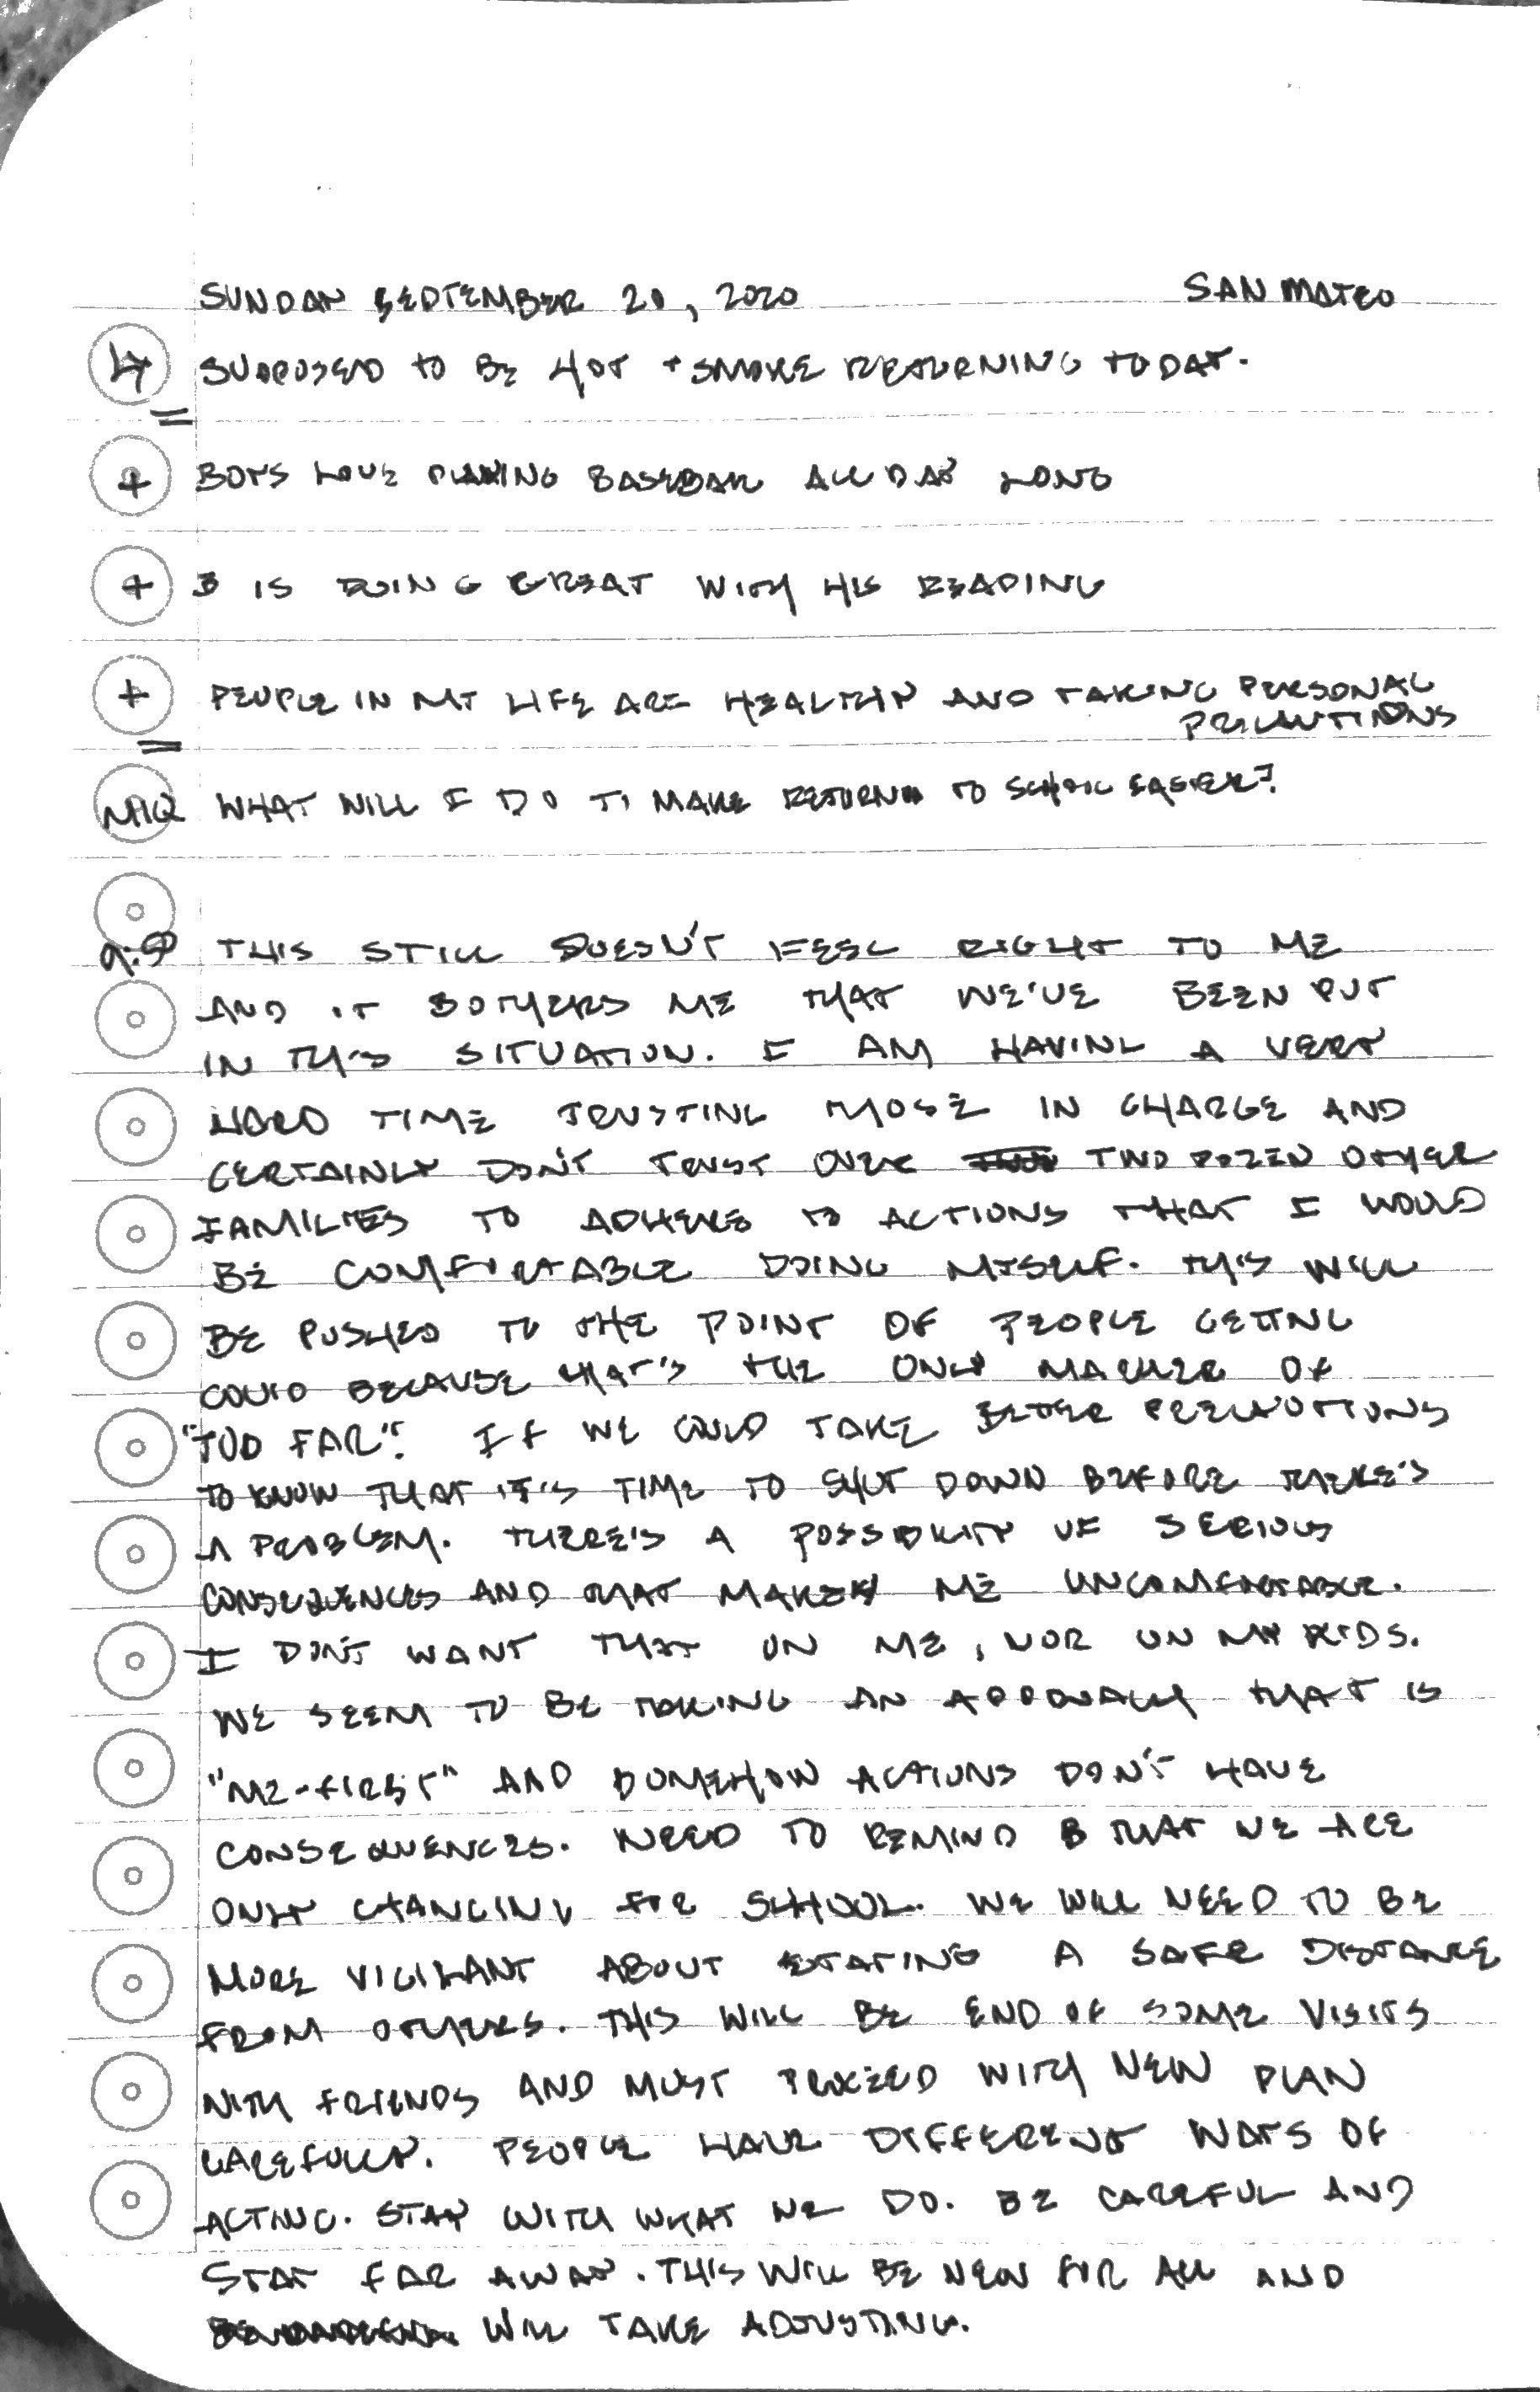 SUNDAY SEPTEMBER 20, 2020 SAN MATEO
SUPPOSED TO BE HOT + SMOKE RETURNING TODAY.
+ BOYS LOVE PLAYING BASEBALL ALL DAY LONG
+ B IS DOING GREAT WITH HIS READING
+ PEOPLE IN MY LIFE ARE HEALTHY AND TAKING PERSONAL
PRECAUTIONS
MIQ WHAT WILL I DO TO MAKE RETURN TO SCHOOL EASIER?
9:50 THIS STILL DOESN'T FEEL RIGHT TO ME
AND IT BOTHERS ME THAT WE'VE BEEN PUT
IN THIS SITUATION. I AM HAVING A VERY
HARD TIME TRUSTING THOSE IN CHARGE AND
CERTAINLY DON'T TRUST OVER TWO DOZEN OTHER
FAMILIES TO ADHERE TO ACTIONS THAT I WOULD
BE COMFORTABLE DOING MYSELF. THIS WILL
BE PUSHED TO THE POINT OF PEOPLE GETTING
COVID BECAUSE THAT'S THE ONLY MARKER OF
"TOO FAR". IF WE COULD TAKE BETTER PRECAUTIONS
TO KNOW THAT IT'S TIME TO SHUT DOWN BEFORE THERE'S
A PROBLEM. THERE'S A POSSIBILITY OF SERIOUS
CONSEQUENCES AND THAT MAKES ME UNCOMFORTABLE.
I DON'T WANT THAT ON ME, NOR ON MY KIDS.
WE SEEM TO BE TAKING AN APPROACH THAT IS
"ME-FIRST" AND SOMEHOW ACTIONS DON'T HAVE
CONSEQUENCES. NEED TO REMIND B THAT WE ARE
ONLY CHANGING FOR SCHOOL. WE WILL NEED TO BE
MORE VIGILANT ABOUT STAYING A SAFE DISTANCE
FROM OTHERS. THIS WILL BE END OF SOME VISITS
WITH FRIENDS AND MUST PROCEED WITH NEW PLAN
CAREFULLY. PEOPLE HAVE DIFFERENT WAYS OF
ACTING. STAY WITH WHAT WE DO. BE CAREFUL AND
STAY FAR AWAY. THIS WILL BE NEW FOR ALL AND
WILL TAKE ADJUSTING.